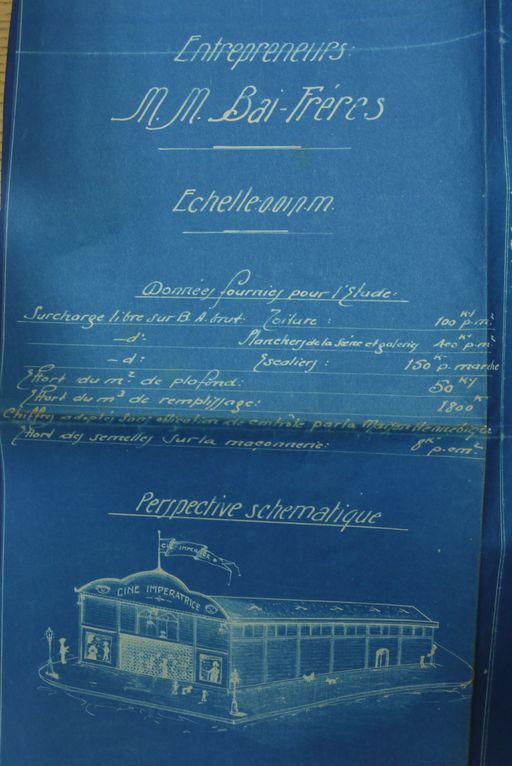 Entrepreneurs:
M.M. Bai-Fréres
Echelle 0.01 p.m.
Données fournies pour l'Etude:
Surcharge libre sur B.A. brut. Toiture: 100 Kg p.m²
-d°- Planchers de la scène et galeries 400 K p.m²
-d: Escaliers: 150 K. p. marche
Effort du m² de plafond: 50 Kg
Effort du m³ de remplissage: 1800 K
Chiffres adoptés sans obligation de contrôle par la Maison Hennebique
Effort des semelles sur la maçonnerie: 8 K p.cm²
Perspective schematique
CINE IMPERATRICE